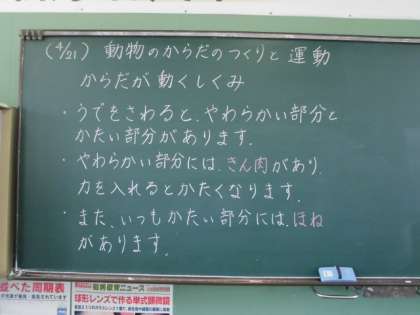 (4/21) 動物のからだのつくりと運動
からだが動くしくみ
・うでをさわると、やわらかい部分と
かたい部分があります。
・やわらかい部分には、きん肉があり、
力を入れるとかたくなります。
・また、いつもかたい部分には、ほね
があります。
並べた周期表
教育ニュース
球形レンズで作る単式顕微鏡